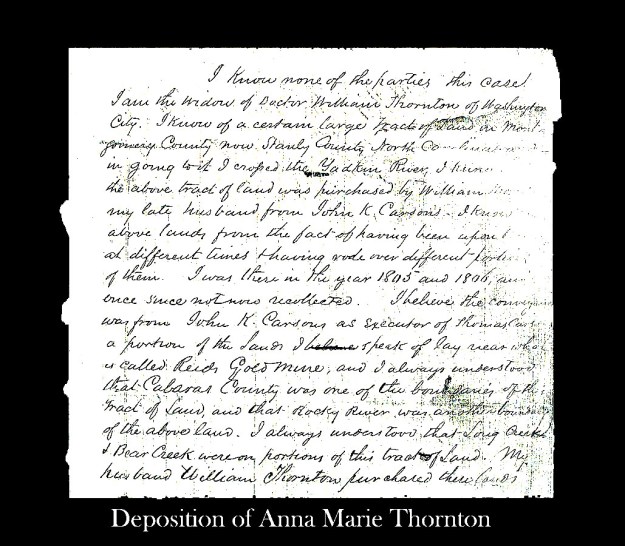 I know none of the parties this case!
I am the widow of Doctor William Thornton of Washington
City. I know of a certain large tract of Land in Mont-
gomery County now Stanly County North
in going to it I crossed the Yadkin River, I
the above tract of land was purchased by William
my late husband from John K. Carsons. I know
above lands from the fact of having been upon
at different times & having rode over different
of them. I was there in the year 1805 and 1806,
once since not now recollected. I believe the
was from John K. Carsons as executor of Thomas
a portion of the lands I speak of lay near
is called Reids Gold Mine; and I always understood
that Cabaras County was one of the boundaries of
tract of land, and that Rocky River was another
of the above land. I always understood that Long Creek
& Bear Creek were on portions of this tract of Land. My
husband William Thornton purchased these lands
Deposition of Anna Marie Thornton